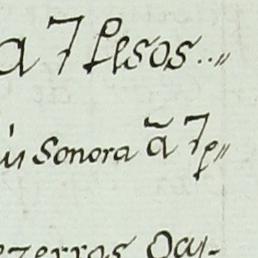 a 7 Pesos..,,
Sonora ã 7p,,
ezerros